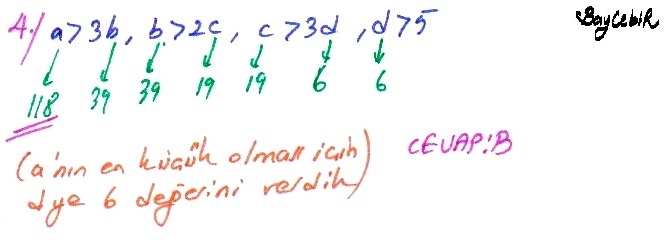 BayCebiR
4./ a>3b, b>2c, c>3d, d>5
118 39 39 19 19 6 6
(a'nın en küçük olması için
d ye 6 değerini verdik)
CEVAP:B